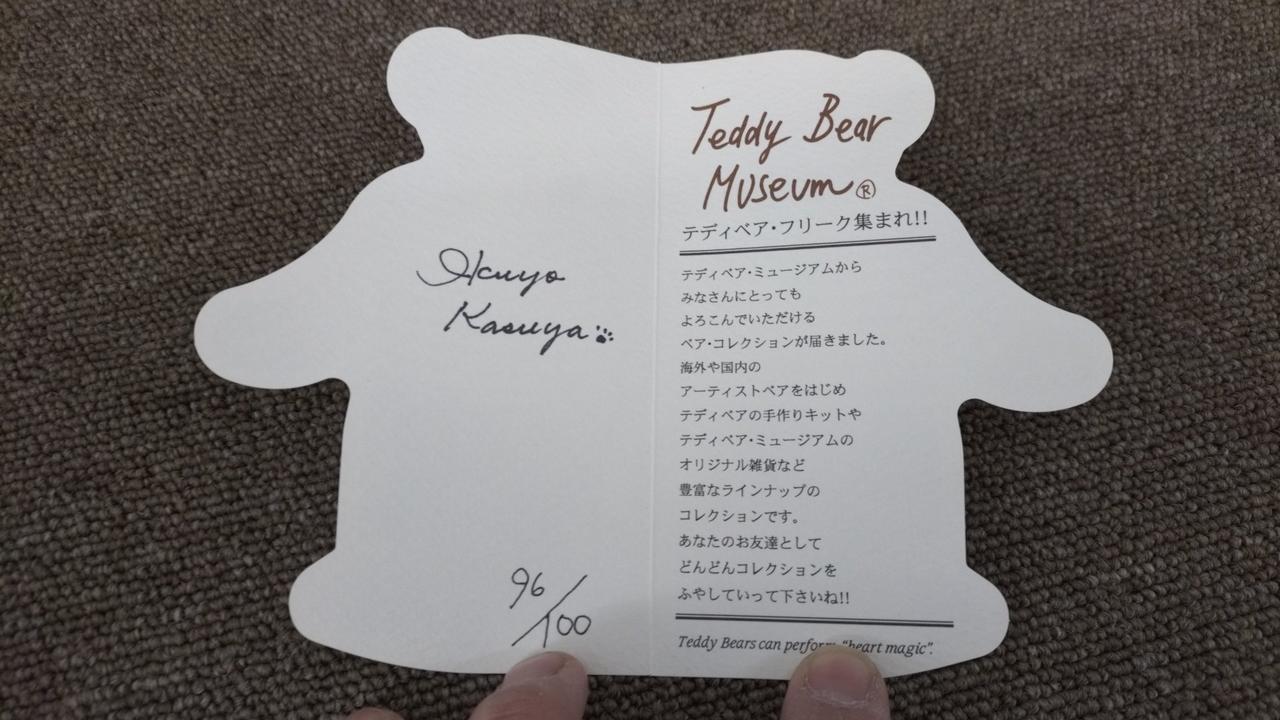 Ikuyo
Kasuya
96/100
Teddy Bear
Museum®
テディベア・フリーク集まれ!!
テディベア・ミュージアムから
みなさんにとっても
よろこんでいただける
ベア・コレクションが届きました。
海外や国内の
アーティストベアをはじめ
テディベアの手作りキットや
テディベア・ミュージアムの
オリジナル雑貨など
豊富なラインナップの
コレクションです。
あなたのお友達として
どんどんコレクションを
ふやしていって下さいね!!
Teddy Bears can perform "heart magic".